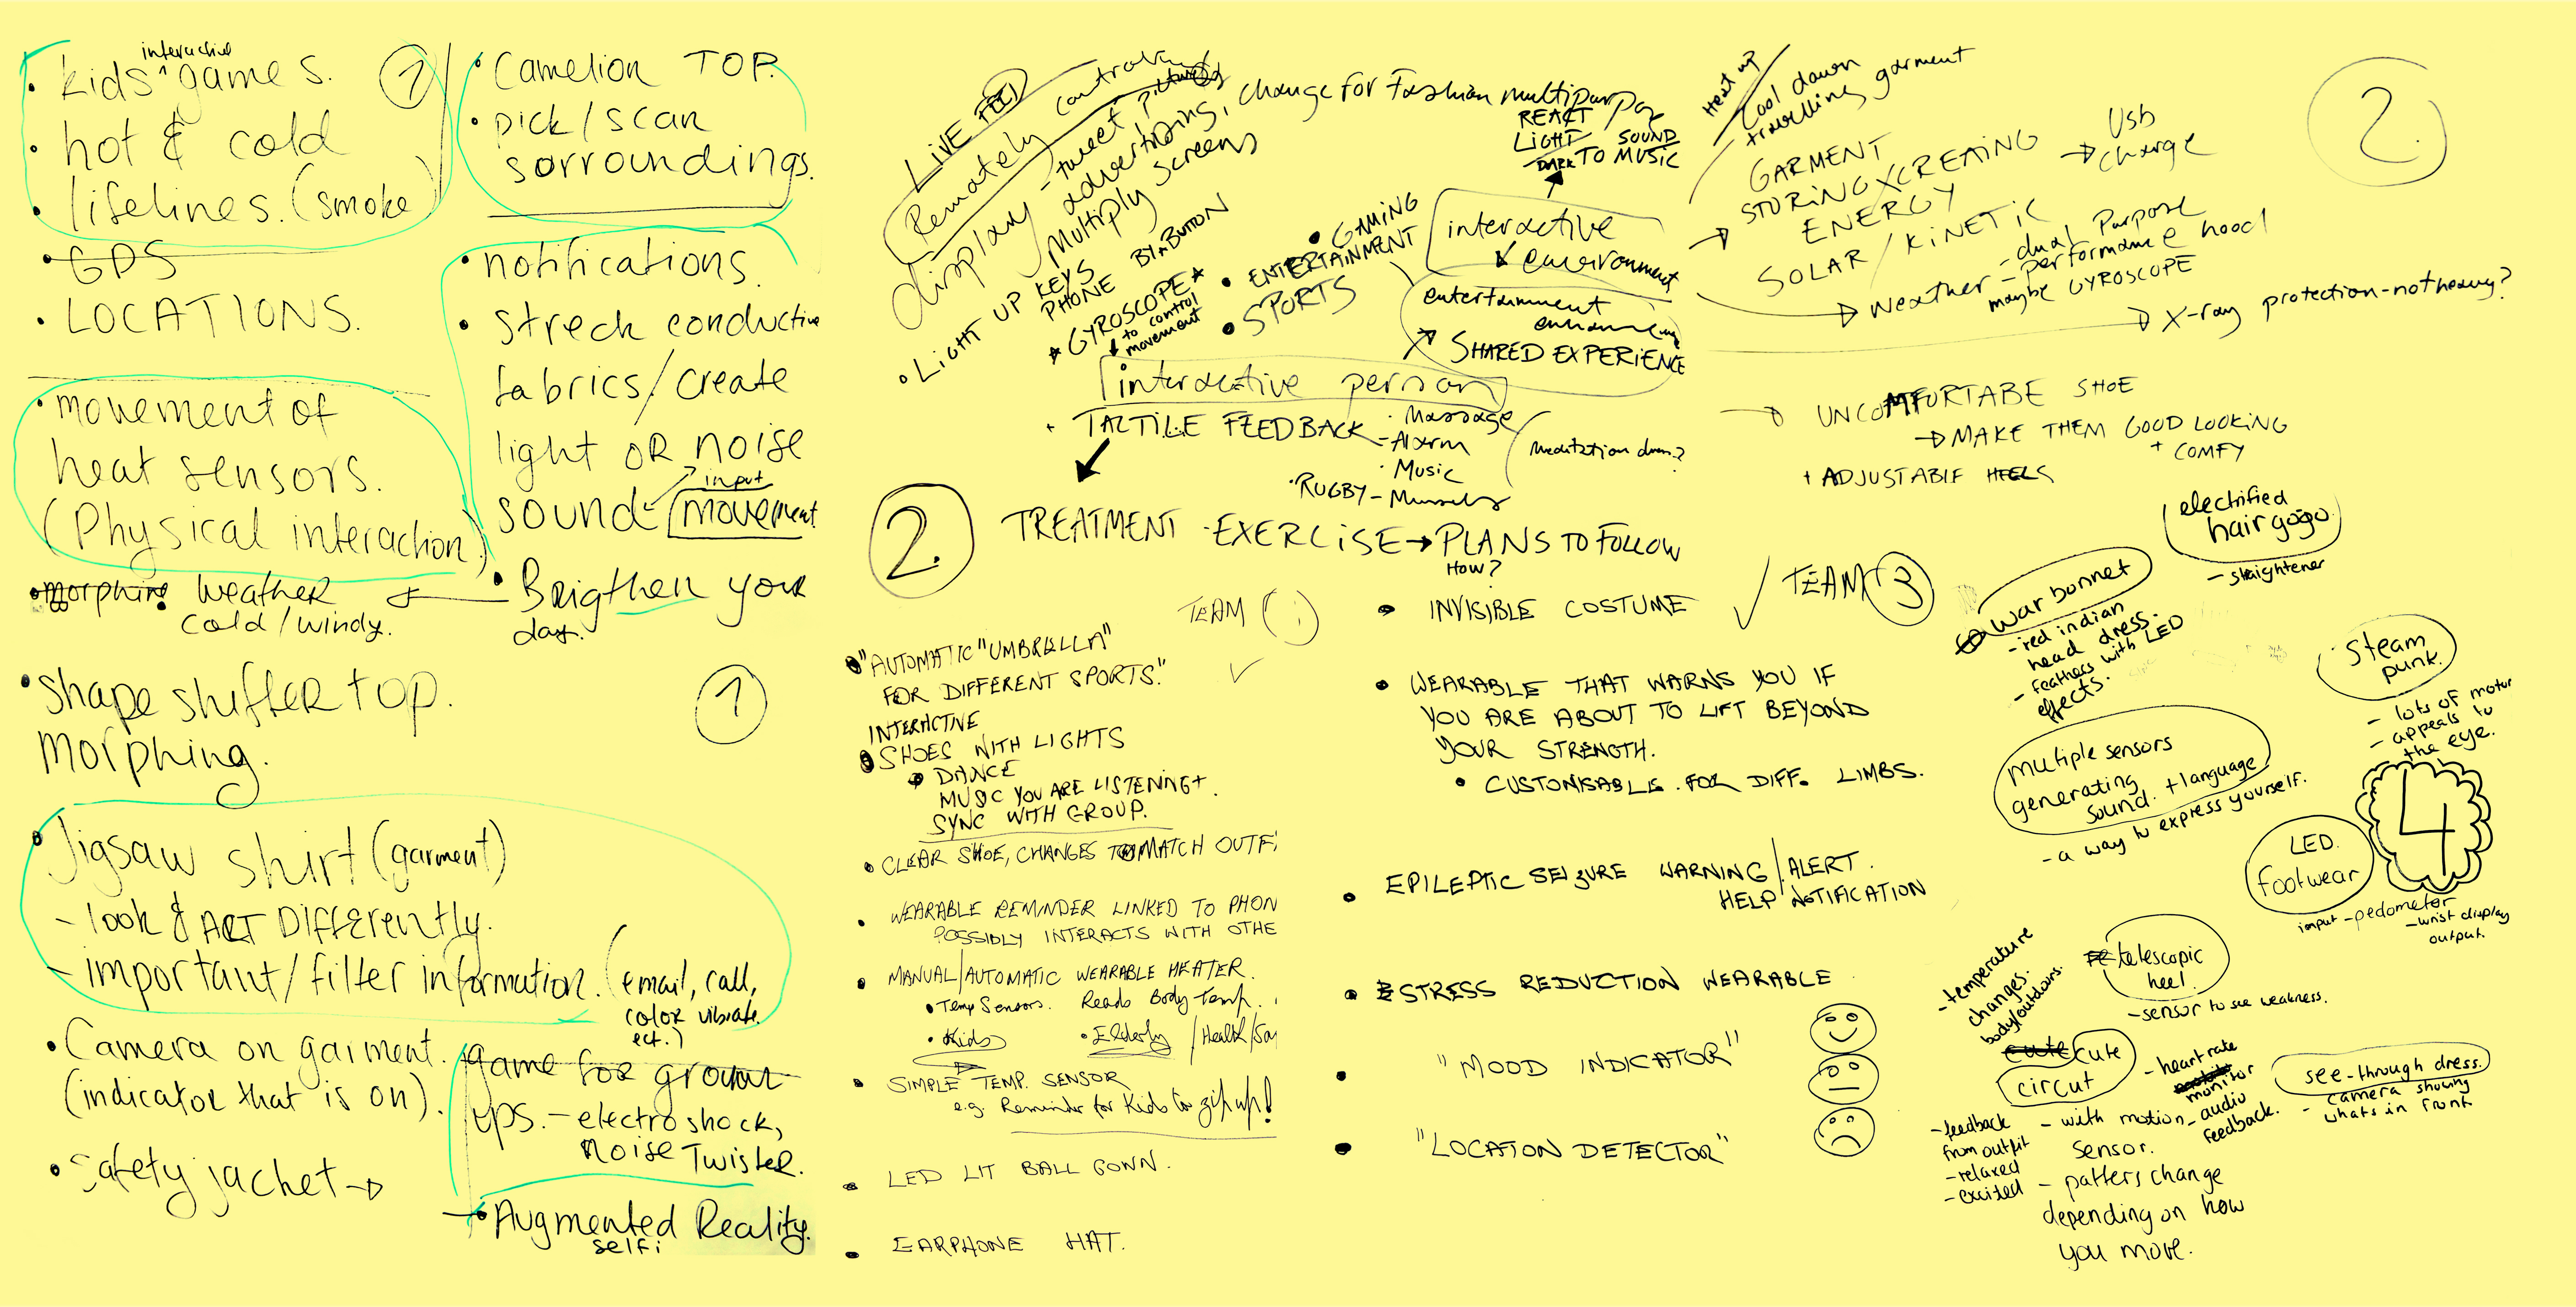 interactive
• kids ^ games.
• hot & cold
• lifelines. (smoke)
• GPS
• LOCATIONS.
1
• Camelion TOP.
• pick/scan
sorroundings.
• notifications.
• streck conductive
fabrics/create
light OR noise
input
sound movement
• Brigthen your
day.
• movement of
heat sensors.
(Physical interaction)
• morphing weather
cold/windy.
• shape shifter top.
morphing.
1
• Jigsaw shirt (garment)
- look & ACT DIFFerently.
- important/filter information. (email, call,
color vibrate.
ect.)
• Camera on garment.
(indicator that is on).
• Safety jachet →
game for groun
ups. - electro shock,
noise Twister.
→ • Augmented Reality.
selfi
LIVE
Remately
display - tweet,
advertizing, change for Fashian multipurpoz
Multiply screens
• LIGHT UP KEYS
PHONE BY A BUTTON
* GYROSCOPE *
to control
movement
• GAMING
• ENTERTAINMENT
• SPORTS
REACT
LIGHT SOUND
DARK TO MUSIC
interactive
environment
entertainment
SHARED EXPERIENCE
interactive person
+ TACTILE FEEDBACK
• Massage
- Alarm
• Music
• RUGBY -
meditation
2.
TREATMENT - EXERCISE → PLANS TO FOLLOW
HOW?
Heat up
Cool down
travelling garment
GARMENT
STORING X CREATING
ENERGY
SOLAR / KiNETiC
→ Usb
charge
→ weather - dual Purpose
- performance hood
maybe GYROSCOPE
→ X-ray protection - not heavy?
2.
→ UNCOMFURTABE SHOE
→ MAKE THEM GOOD LOOKING
+ COMFY
+ ADJUSTABLE HEELS
TEAM 1
• "AUTOMATIC "UMBRELLA"
FOR DIFFERENT SPORTS."
INTERACTIVE
• SHOES WITH LIGHTS
• DANCE
MUSIC YOU ARE LISTENING +
SYNC WITH GROUP.
• CLEAR SHOE, CHANGES TO MATCH OUTF
• WEARABLE REMINDER LINKED TO PHON
POSSIBLY INTERACTS WITH OTHE
• MANUAL/AUTOMATIC WEARABLE HEATER.
• Temp Sensors. Reads Body Temp.
• Kids • Elderly / Health/Sa
• SIMPLE TEMP. SENSOR
e.g. Reminder for Kids to zip up!
• LED LIT BALL GOWN.
• EARPHONE HAT.
TEAM 3
• INVISIBLE COSTUME
• WEARABLE THAT WARNS YOU IF
YOU ARE ABOUT TO LIFT BEYOND
YOUR STRENGTH.
• CUSTOMISABLE FOR DIFF. LIMBS.
• EPILEPTIC SEIZURE WARNING/ALERT.
HELP NOTIFICATION
• STRESS REDUCTION WEARABLE
• "MOOD INDICATOR"
• "LOCATION DETECTOR"
electrified
hair gogo
- straightener
war bonnet
- red indian
head dress.
- feathers with LED
effects.
steam
punk.
- lots of motor
- appeals to
the eye.
multiple sensors
generating
sound. + language
- a way to express yourself.
4
LED.
footwear
input - pedometer
- wrist display
output.
telescopic
heel.
- sensor to see weakness.
- temperature
changes.
body/outdoors.
cute cute
circut
- heart rate
monitor
- audio
feedback.
see-through dress.
- camera showing
whats in front
- feedback
from outfit
- relaxed
- excited
- with motion
sensor.
- patters change
depending on how
you move.